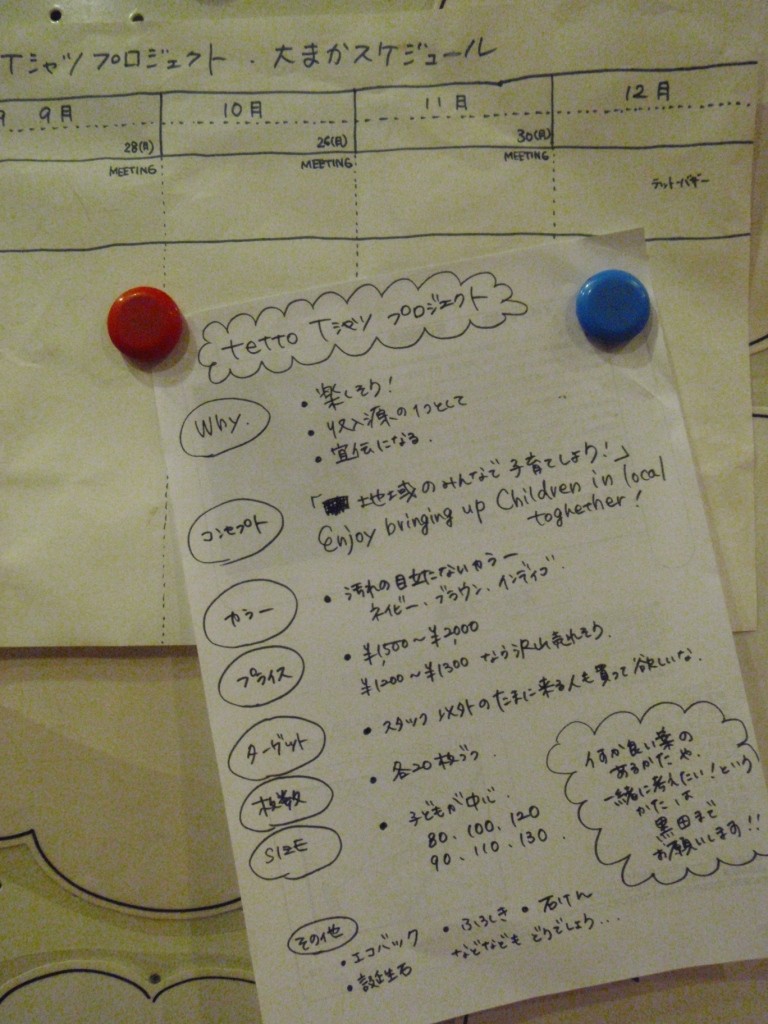 Tシャツプロジェクト.大まかスケジュール
9 9月 10月 11月 12月
28(月) 26(月) 30(月)
MEETING MEETING MEETING
テットバザー
tetto Tシャツ プロジェクト
Why.
・楽しそう!
・収入源の1つとして
・宣伝になる.
コンセプト
「地域のみんなで子育てしよう!」
Enjoy bringing up Children in local
toghether!
カラー
・汚れの目立たないカラー
ネイビー、ブラウン、インディゴ.
プライス
・¥1,500〜¥2,000
¥1200〜¥1300 なら沢山売れそう.
ターゲット
・スタッフ以外のたまに来る人も買って欲しいな.
枚数
・各20枚ずつ.
SIZE
・子どもが中心.
80、100、120
90、110、130.
何か良い案の
あるかたや、
一緒に考えたい!という
かたは
黒田まで
お願いします!!
その他
・エコバック ・ふろしき ・石けん
・誕生石 などなどもどうでしょう...